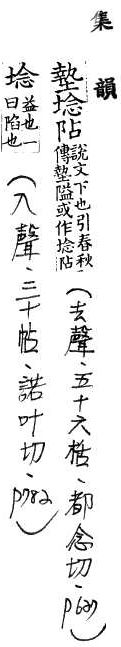 集韻
墊埝阽說文下也引春秋傳墊隘或作埝阽(去聲、五十六㮇、都念切、p627)
埝益也一曰陷也(入聲、三十帖、諾叶切、p782)